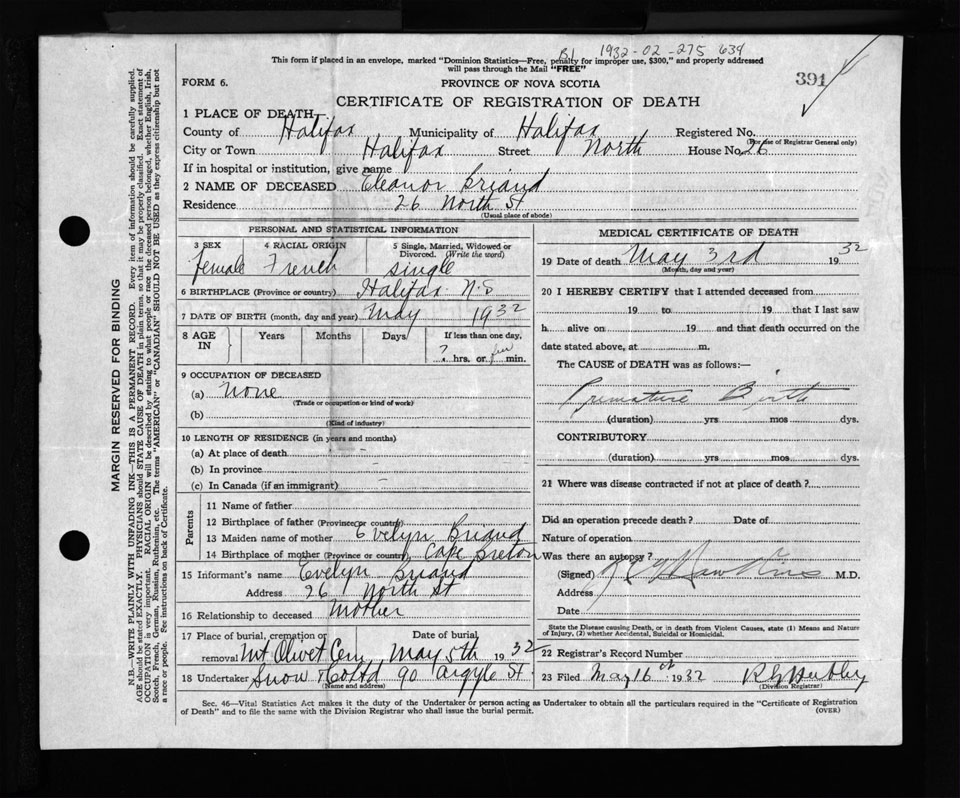 B1 1932-02-275 634
This form if placed in an envelope, marked "Dominion Statistics—Free, penalty for improper use, $300," and properly addressed
will pass through the Mail "FREE"
391
FORM 6.
PROVINCE OF NOVA SCOTIA
CERTIFICATE OF REGISTRATION OF DEATH
1 PLACE OF DEATH
County of Halifax Municipality of Halifax Registered No.
(For use of Registrar General only)
City or Town Halifax Street North House No. 26
If in hospital or institution, give name
2 NAME OF DECEASED Eleanor Briand
Residence 26 North St
(Usual place of abode)
PERSONAL AND STATISTICAL INFORMATION
3 SEX 4 RACIAL ORIGIN 5 Single, Married, Widowed or
Divorced. (Write the word)
female French single
6 BIRTHPLACE (Province or country) Halifax N.S
7 DATE OF BIRTH (month, day and year) May 1932
8 AGE IN Years Months Days If less than one day,
? hrs. or few min.
9 OCCUPATION OF DECEASED
(a) None
(Trade or occupation or kind of work)
(b)
(Kind of industry)
10 LENGTH OF RESIDENCE (in years and months)
(a) At place of death
(b) In province
(c) In Canada (if an immigrant)
Parents
11 Name of father
12 Birthplace of father (Province or country)
13 Maiden name of mother Evelyn Briand
14 Birthplace of mother (Province or country) Cape Breton
15 Informant's name Evelyn Briand
Address 26 North St
16 Relationship to deceased Mother
17 Place of burial, cremation or Date of burial
removal Mt Olivet Cem May 5th 1932
18 Undertaker Snow & Co Ltd 90 Argyle St.
(Name and address)
MEDICAL CERTIFICATE OF DEATH
19 Date of death May 3rd 1932
(Month, day and year)
20 I HEREBY CERTIFY that I attended deceased from
19 to 19 that I last saw
h alive on 19 and that death occurred on the
date stated above, at m.
The CAUSE of DEATH was as follows:—
Premature Birth
(duration) yrs mos dys.
CONTRIBUTORY
(duration) yrs mos dys.
21 Where was disease contracted if not at place of death?
Did an operation precede death? Date of
Nature of operation
Was there an autopsy?
(Signed) Hawkins M.D.
Address
Date
State the Disease causing Death, or in death from Violent Causes, state (1) Means and Nature
of Injury, (2) whether Accidental, Suicidal or Homicidal.
22 Registrar's Record Number
23 Filed May 16 1932
(Division Registrar)
Sec. 46—Vital Statistics Act makes it the duty of the Undertaker or person acting as Undertaker to obtain all the particulars required in the "Certificate of Registration
of Death" and to file the same with the Division Registrar who shall issue the burial permit.
(OVER)
MARGIN RESERVED FOR BINDING
N.B.—WRITE PLAINLY WITH UNFADING INK—THIS IS A PERMANENT RECORD. Every item of information should be carefully supplied.
AGE should be stated EXACTLY. PHYSICIANS should STATE CAUSE OF DEATH in plain terms, so that it may be properly classified. Exact statement of
OCCUPATION is very important. RACIAL ORIGIN will be described by stating to what people or race the deceased person belonged, whether English, Irish,
Scotch, French, German, Russian, Ruthenian, etc. The terms "AMERICAN" or "CANADIAN" SHOULD NOT BE USED as they express citizenship but not
a race or people. See instructions on back of Certificate.